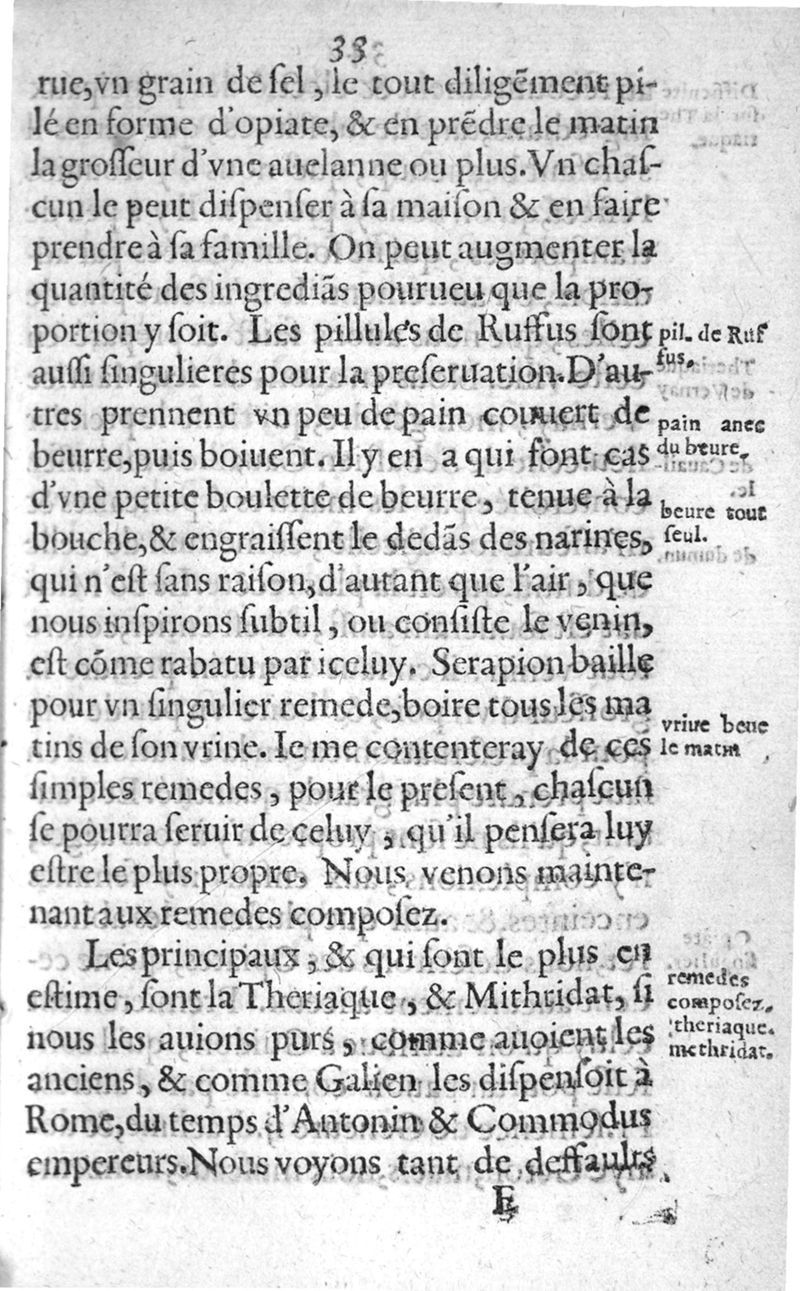 33
rue,vn grain de ſel, le tout diligẽment pi-
lé en forme d'opiate, & en prẽdre le matin
la groſſeur d'vne auelanne ou plus. Vn chaſ-
cun le peut diſpenſer à ſa maiſon & en faire
prendre à ſa famille. On peut augmenter la
quantité des ingrediãs pourueu que la pro-
portion y ſoit. Les pillules de Ruffus ſont
pil. de Ruf
fus.
auſſi ſingulieres pour la preſeruation. D'au-
tres prennent vn peu de pain couuert de
pain auec
du beure.
beurre, puis boiuent. Il y en a qui font cas
d'vne petite boulette de beurre, tenue à la
beure tout
ſeul.
bouche, & engraiſſent le dedãs des narines,
qui n'eſt ſans raiſon, d'autant que l'air, que
nous inſpirons ſubtil, ou conſiſte le venin,
eſt cõme rabatu par iceluy. Serapion baille
pour vn ſingulier remede, boire tous les ma
vrine beue
le matin
tins de ſon vrine. Ie me contenteray de ces
ſimples remedes, pour le preſent, chaſcun
ſe pourra ſeruir de celuy, qu'il penſera luy
eſtre le plus propre. Nous venons mainte-
nant aux remedes compoſez.
Les principaux, & qui ſont le plus en
remedes
compoſez.
theriaque.
methridat.
eſtime, ſont la Theriaque, & Mithridat, ſi
nous les auions purs, comme auoient les
anciens, & comme Galien les diſpenſoit à
Rome, du temps d'Antonin & Commodus
empereurs. Nous voyons tant de deffaults
E